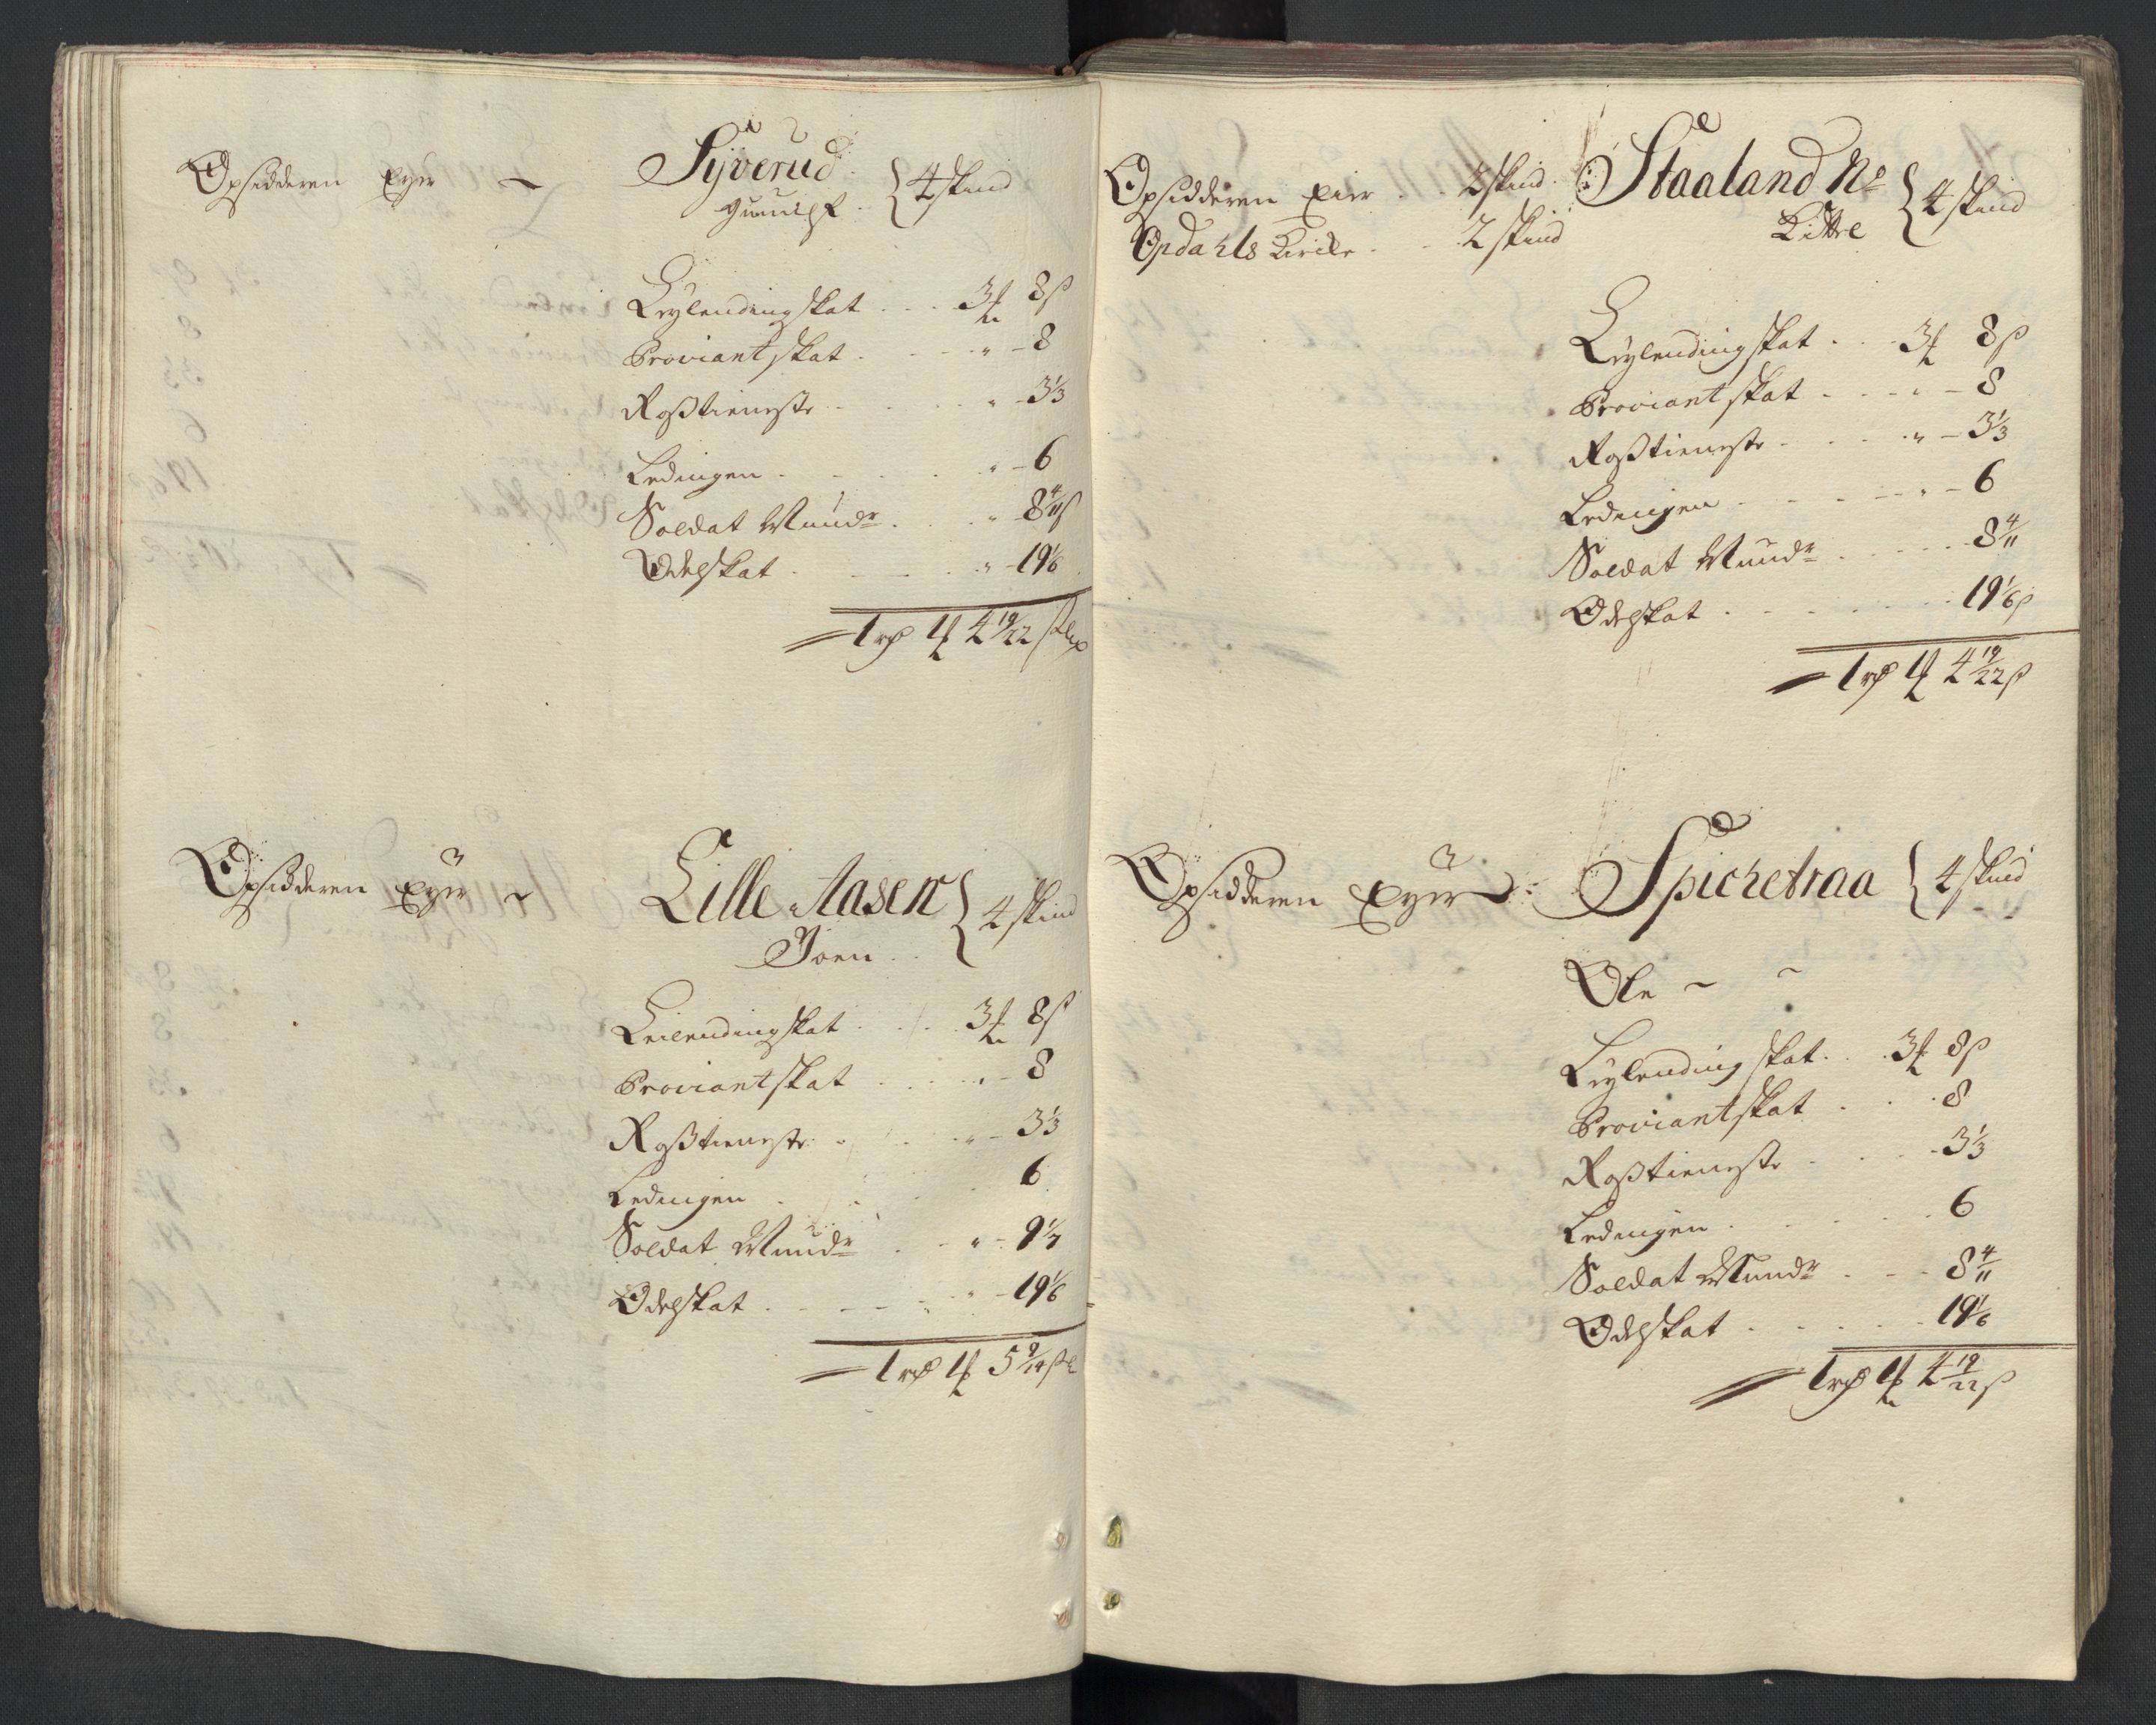 Opsidderen Eyer ~ Syverud {4 skind
Leylendingskat . . . 3 ℔ 8 ß
Proviantskat . . . " - 8
Roßtieneste . . . " - 3⅓
Ledingen . . . " - 6
Soldat Mundr . . . " - 8 4/11 ß
Odelskat . . . " - 19⅙
1 rd 1 ℔ 4 19/22 ß
Opsidderen Eyer ~ Lille Aasen {4 skind
Joen
Leilendingskat . . . 3 ℔ 8 ß
Proviantskat . . . " - 8
Roßtieneste . . . " - 3⅓
Ledingen . . . 6
Soldat Mundr . . . " - 9 1/7
Odelskat . . . " - 19⅙
1 rd 1 ℔ 5 9/14 ß
Opsidderen Eier . 2 skind . Staaland Ne {4 skind
Opdahls Kirke . . 2 skind
Leylendingskat . . . 3 ℔ 8 ß
Proviantskat . . . " - 8
Roßtieneste . . . " - 3⅓
Ledingen . . . " - 6
Soldat Mundr . . . 8 4/11
Odelskat . . . 19⅙ ß
1 rd 1 ℔ 4 19/22 ß
Opsidderen Eyer Spichetraa {4 skind
Ole ~
Leylendingskat . . 3 ℔ 8 ß
Proviantskat . . . 8
Roßtieneste . . . 3⅓
Ledingen . . . 6
Soldat Mundr . . . 8 4/11
Odelskat . . . 19⅙
1 rd 1 ℔ 4 19/22 ß